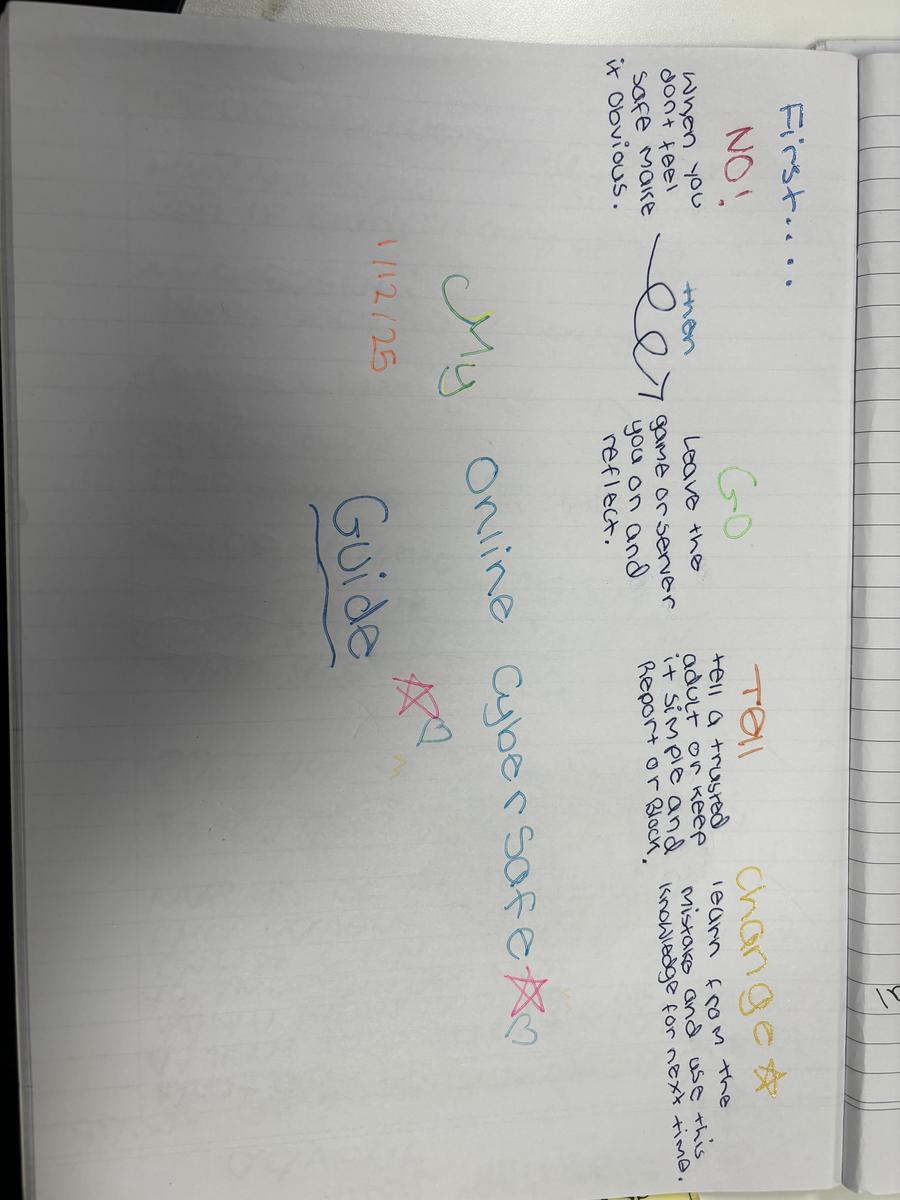 First....
NO!
When you
dont feel
safe make
it obvious.
then
GO
Leave the
game or server
you on and
reflect.
Tell
tell a trusted
adult or keep
it simple and
Report or Block.
Change
learn from the
mistake and use this
knowledge for next time.
My Online Cybersafe
1/12/25
Guide